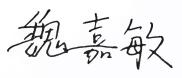 魏嘉敏